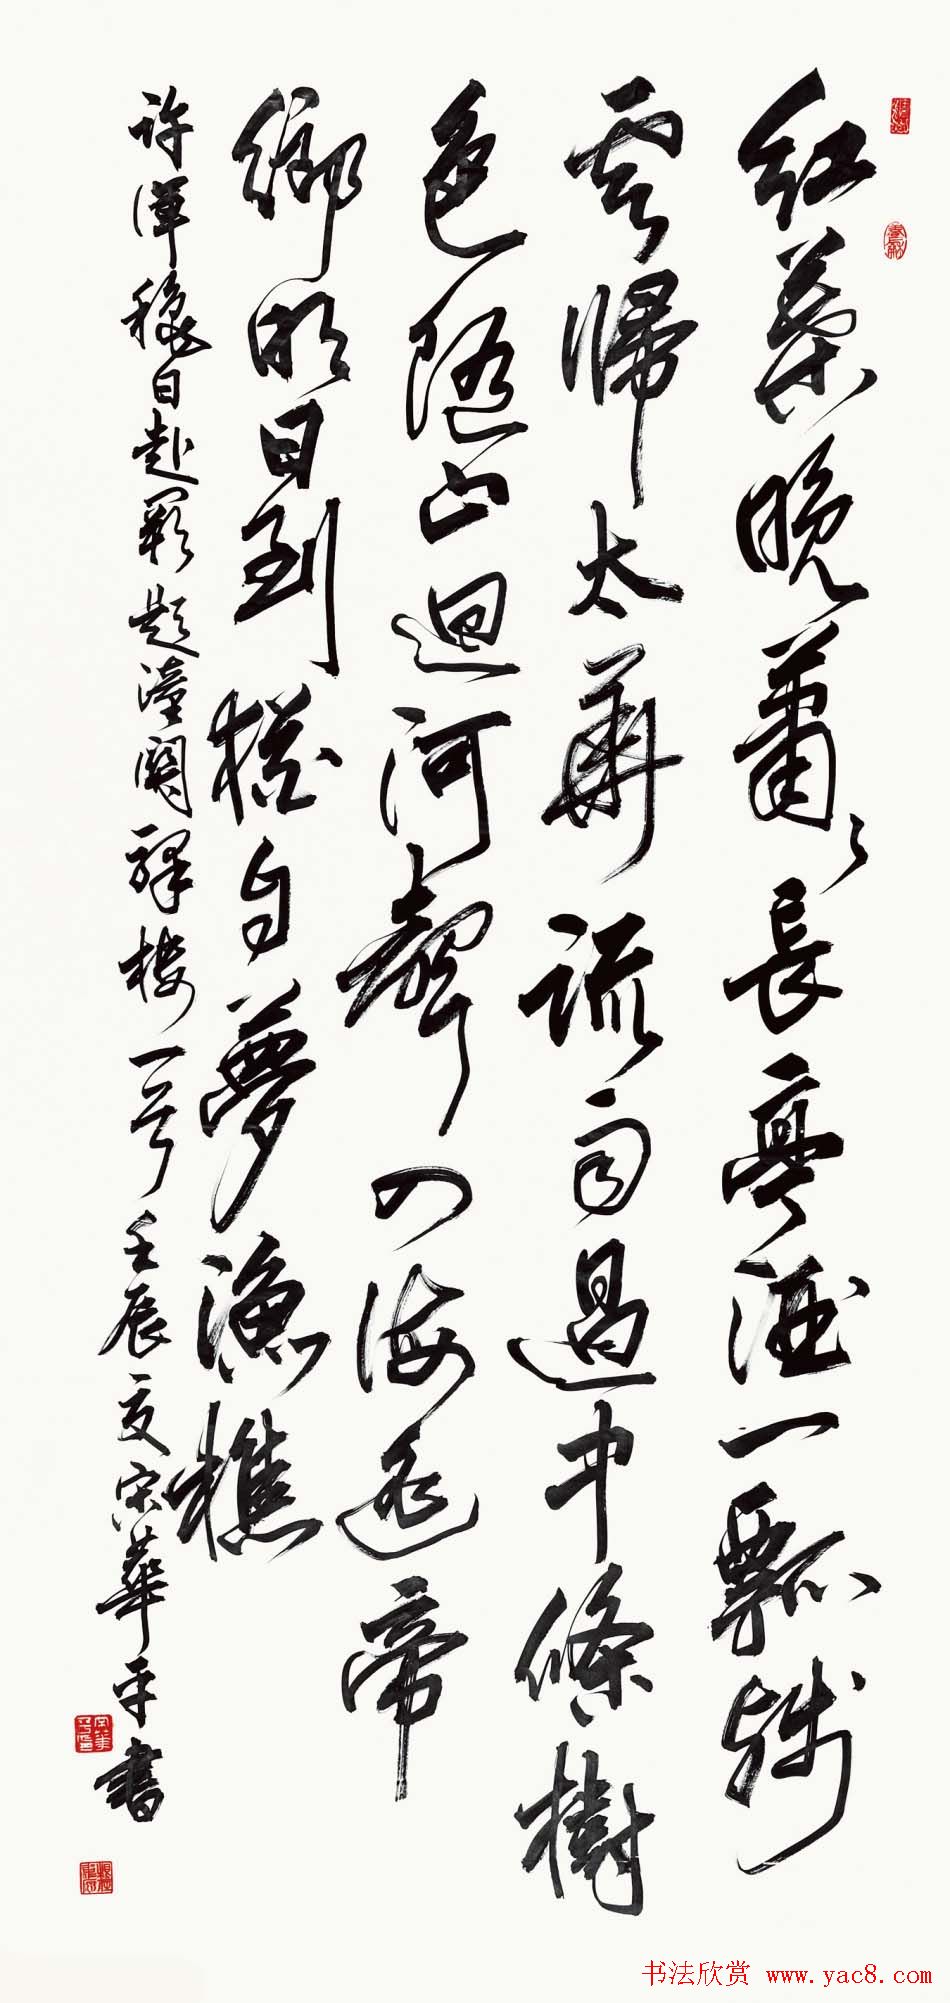 红葉晚蕭〻長亭酒一瓢殘
雲歸太華疏雨過中條樹
色随山迴河聲入海遥帝
鄉明日到猶自夢漁樵
許渾秋日赴闕題潼關驛樓一首壬辰夏宋華平書
书法欣赏 www.yac8.com